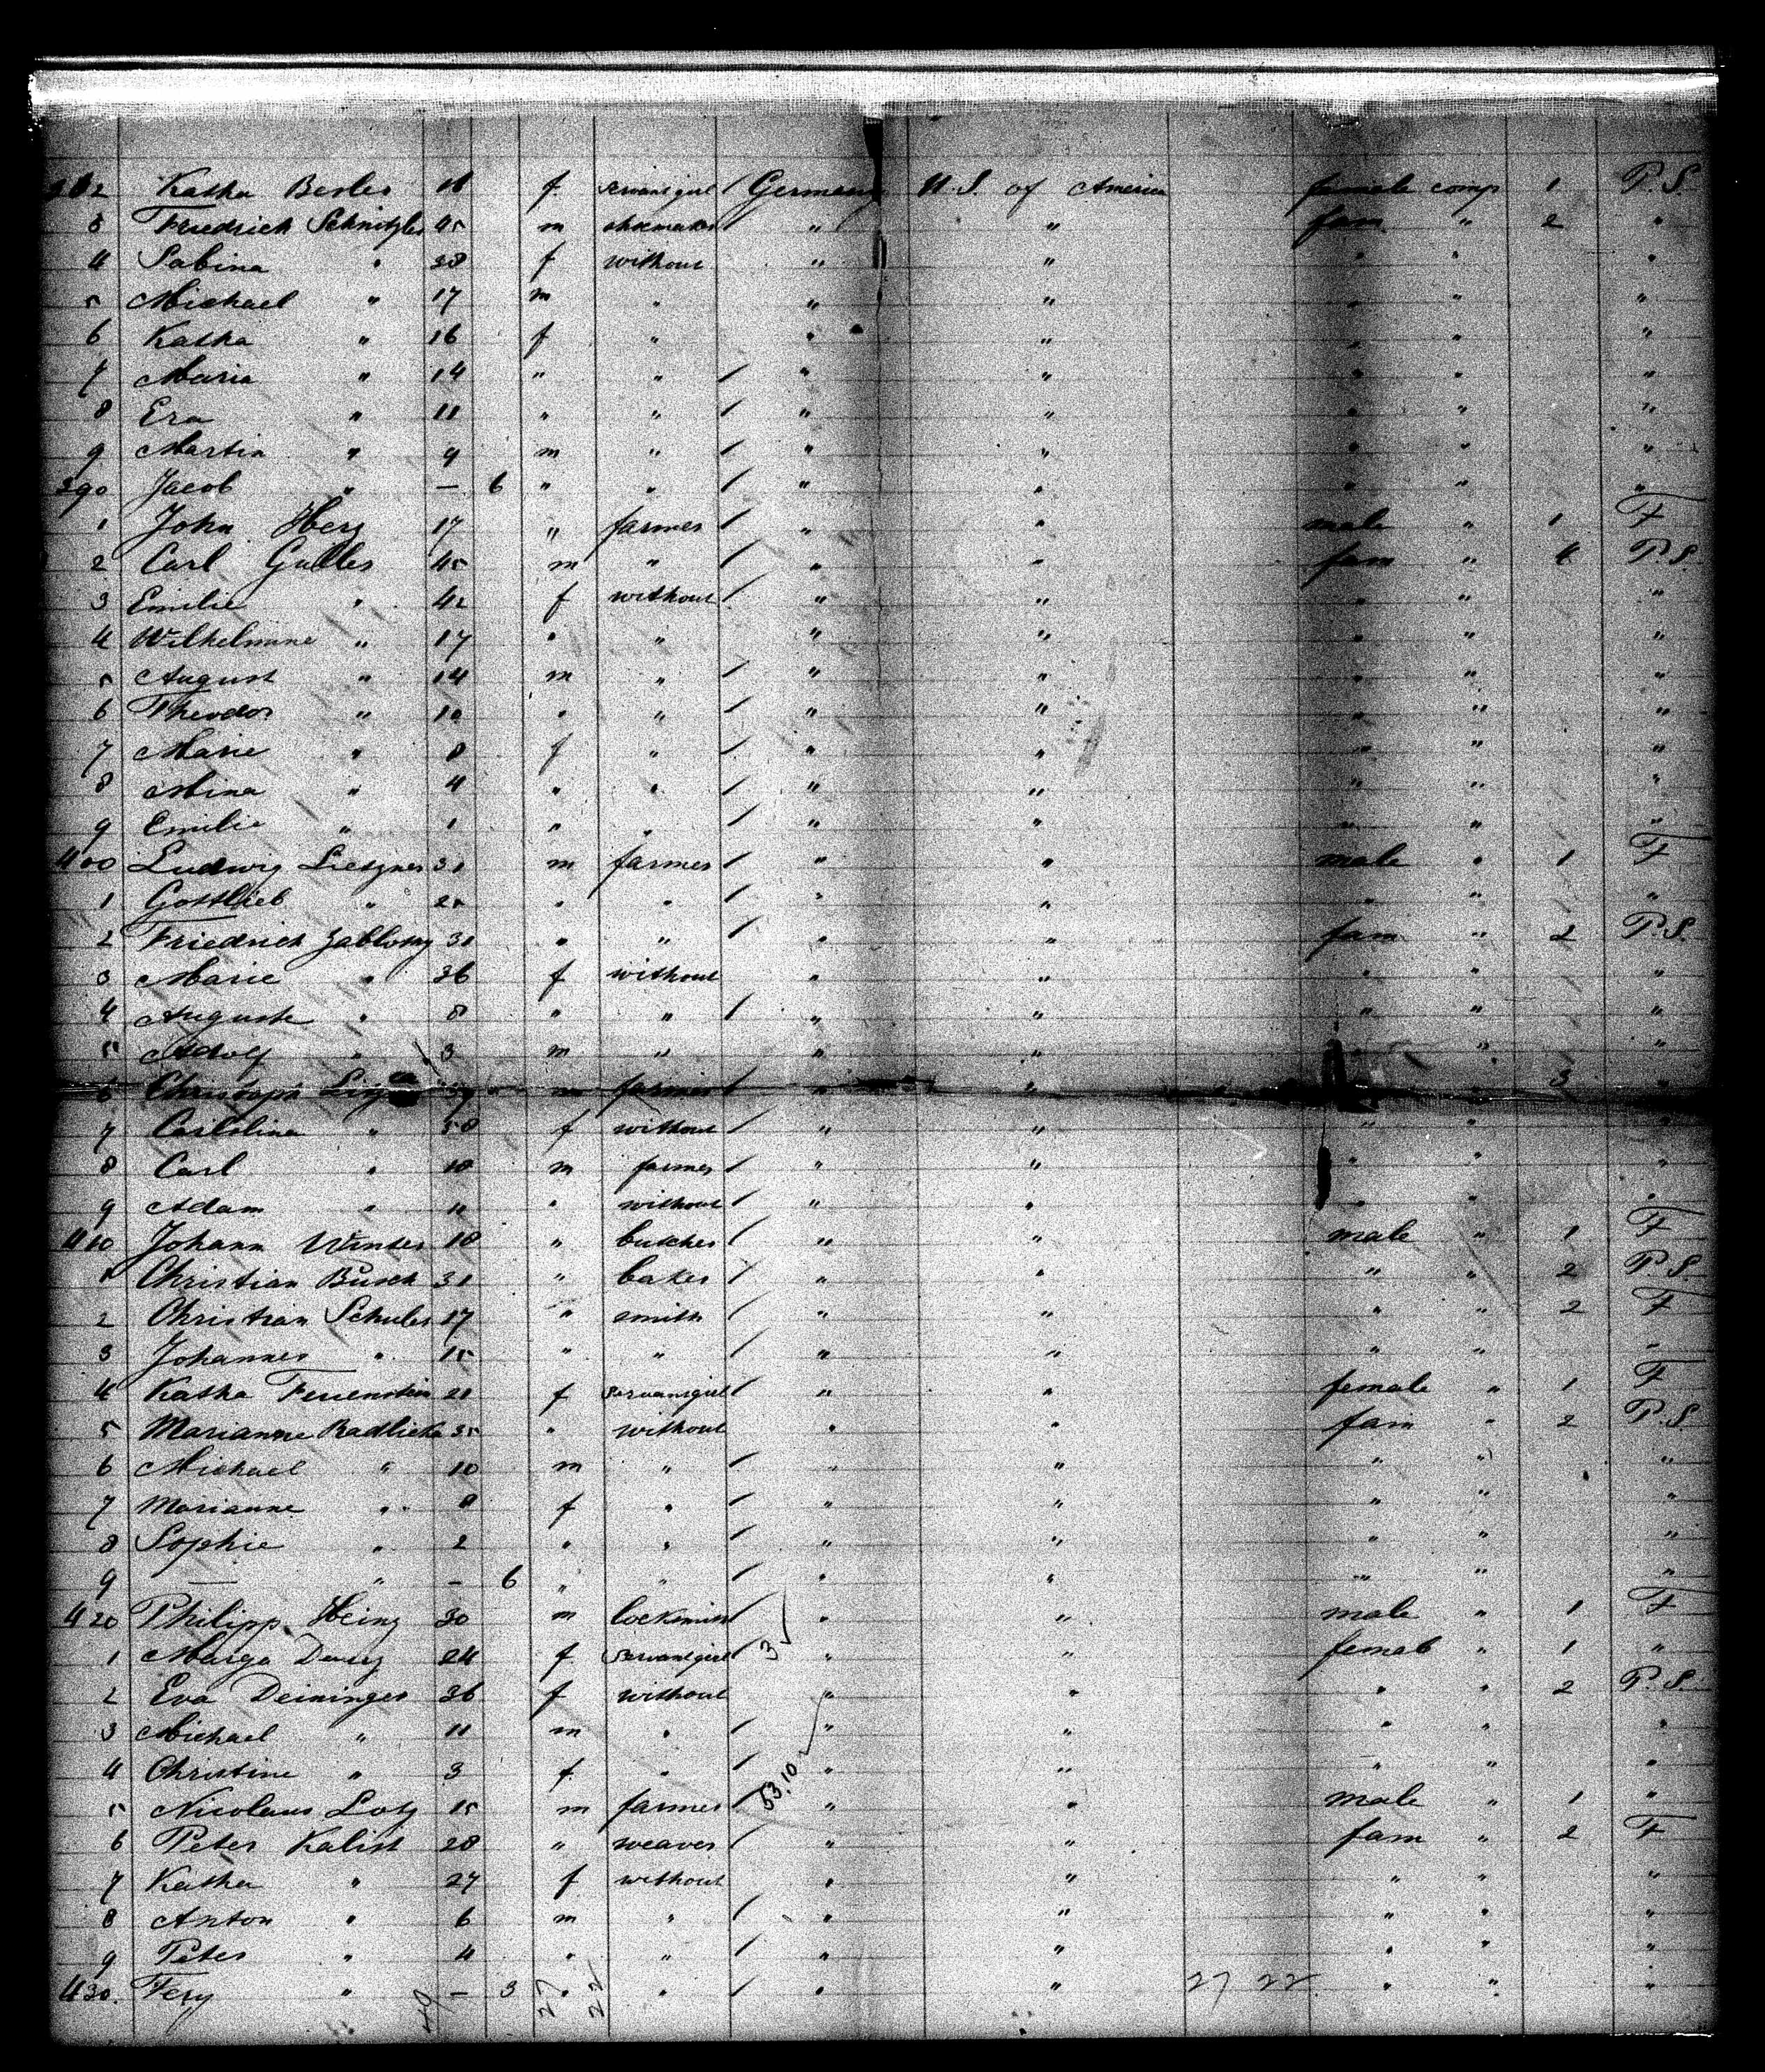 382 Katha Besler 18 f servant girl / Germany U.S. of America female comp 1 P.S.
3 Friedrich Schnitzler 45 m shoemaker / " " fam " 2 "
4 Sabina " 38 f without " " " " "
5 Michael " 17 m " " " " " "
6 Katha " 16 f " " " " " "
7 Maria " 14 " " / " " " " "
8 Eva " 11 " " / " " " " "
9 Martin " 9 m " / " " " " "
390 Jacob " — 6 " " / " " " " "
1 John Herz 17 " farmer / " " male " 1 F
2 Carl Guller 45 m " / " " fam " 4 P.S.
3 Emilie " 42 f without / " " " " "
4 Wilhelmine " 17 " " " " " " "
5 August " 14 m " / " " " " "
6 Theodor " 10 " " / " " " " "
7 Marie " 8 f " / " " " " "
8 Mina " 4 " " / " " " " "
9 Emilie " 1 " " / " " " " "
400 Ludwig 31 m farmer / " " male " 1 F
1 Gottlieb " 25 " " / " " " " "
2 Friedrich Zablotny 31 " " / " " fam " 2 P.S.
3 Marie " 36 f without " " " " "
4 Auguste " 8 " " / " " " " "
5 Adolf " 3 m " " " " " "
6 Christoph 59 m farmer / " " " 3 "
7 Carolina " 58 f without / " " " " "
8 Carl " 18 m farmer / " " " " "
9 Adam " 11 " without / " " " " "
410 Johann Winter 18 " butcher / " " male " 1 F
1 Christian Busch 31 " baker / " " " " 2 P.S.
2 Christian Schuler 17 " smith " " " " 2 F
3 Johannes " 15 " " / " " " " "
4 Katha Feuerstein 21 f servantgirl / " " female " 1 F
5 Marianne Radlicka 35 " without " " fam " 2 P.S.
6 Michael " 10 m " / " " " " "
7 Marianne " 8 f " / " " " " "
8 Sophie " 2 " " / " " " " "
9 — " — 6 " " / " " " " "
420 Philipp Heinz 30 m locksmith / " " male " 1 F
1 Marga 24 f servantgirl / 3 " " female " 1 "
2 Eva Deininger 36 f without " " " " 2 P.S.
3 Michael " 11 m " / " " " " "
4 Christine " 3 f " / " " " " "
5 Nicolaus Lotz 15 m farmer / 53.10 " " male " 1 "
6 Peter Kalist 28 " weaver / " " fam " 2 F
7 Katha " 27 f without " " " " "
8 Anton " 6 m " / " " " " "
9 Peter " 4 " " / " " " " "
430. Fery " — 3 " " / " " 27 22 " " "
49 27 22